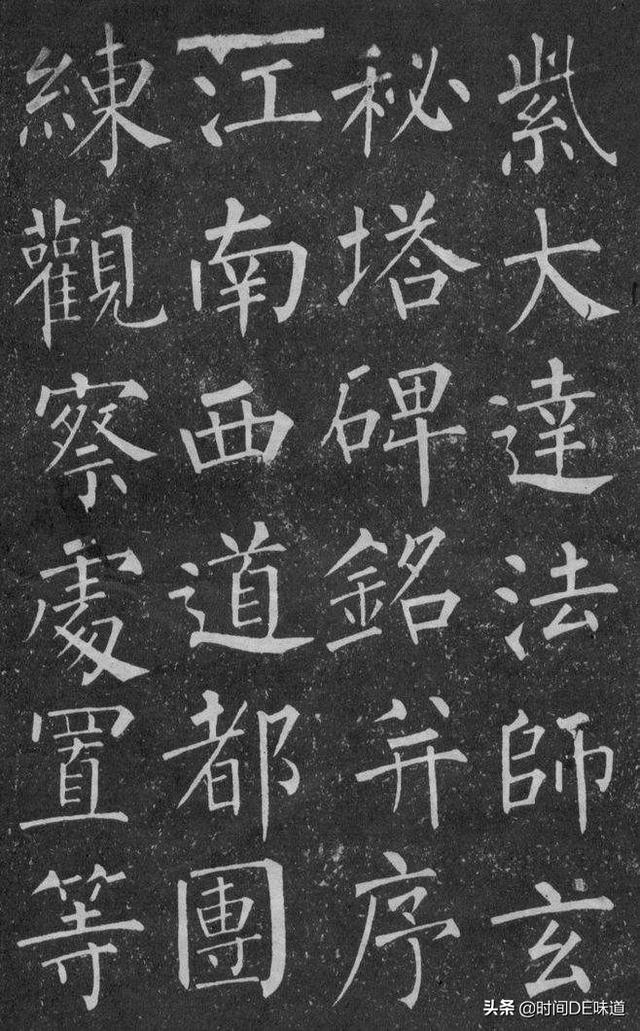 紫大達法師玄
秘塔碑銘并序
江南西道都團
練觀察處置等
头条 @时间DE味道